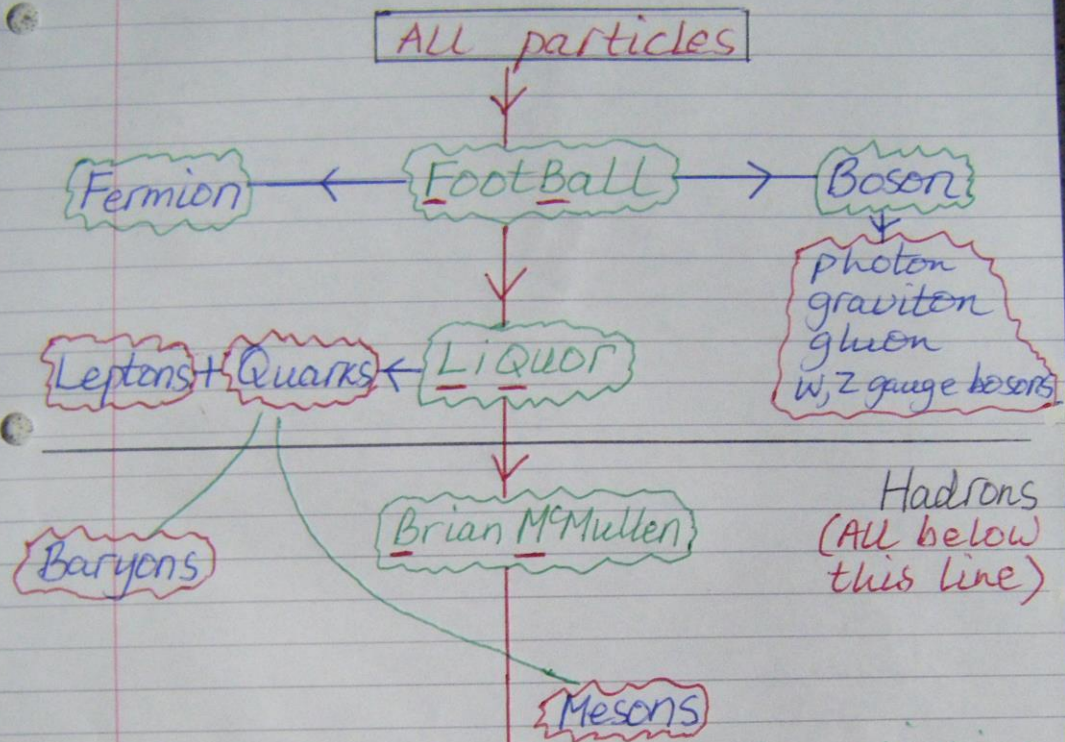 ALL particles
Fermion FootBall Boson
photon
graviton
gluon
W, Z gauge bosons
Leptons + Quarks LiQuor
Hadrons
(ALL below
this line)
Brian McMullen
Baryons
Mesons